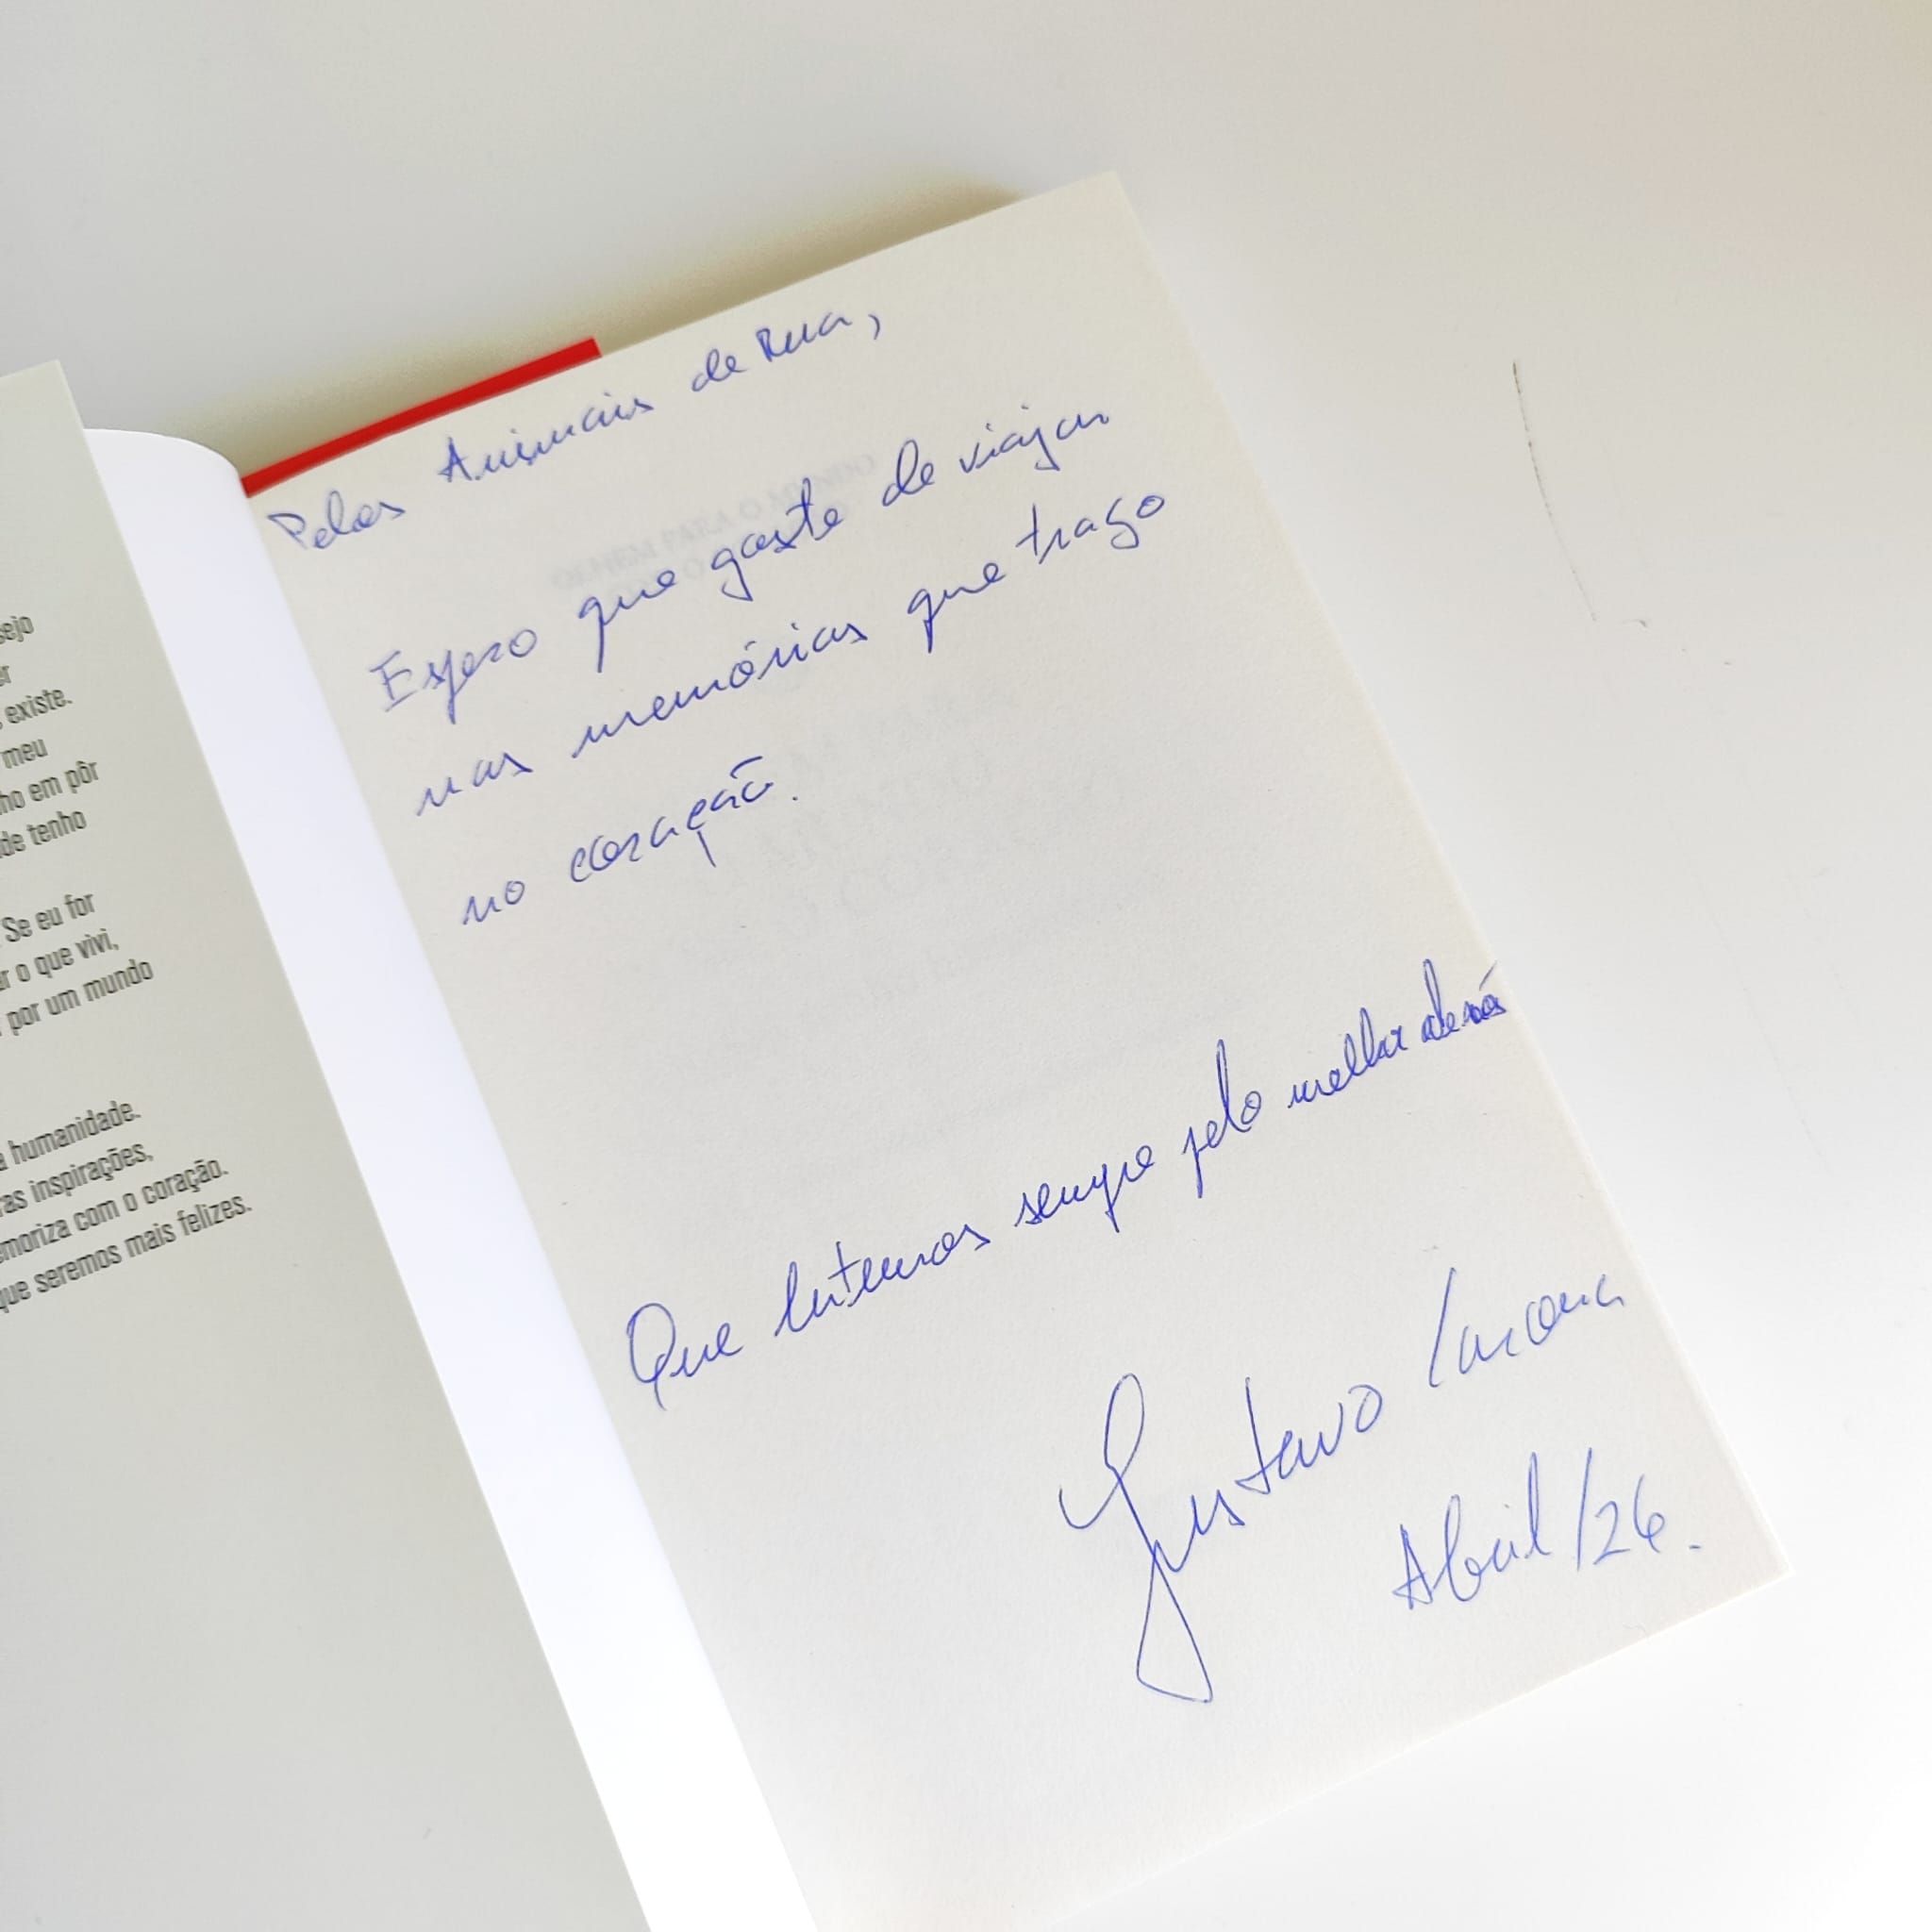 sejo
er
existe.
meu
ho em pôr
de tenho
Se eu for
r o que vivi,
por um mundo
a humanidade.
ras inspirações,
emoriza com o coração.
que seremos mais felizes.
Pelos Animais de Rua,
Espero que goste de viajar
nas memórias que trago
no coração.
Que lutemos sempre pelo melhor de nós
Gustavo Carona
Abril/26.